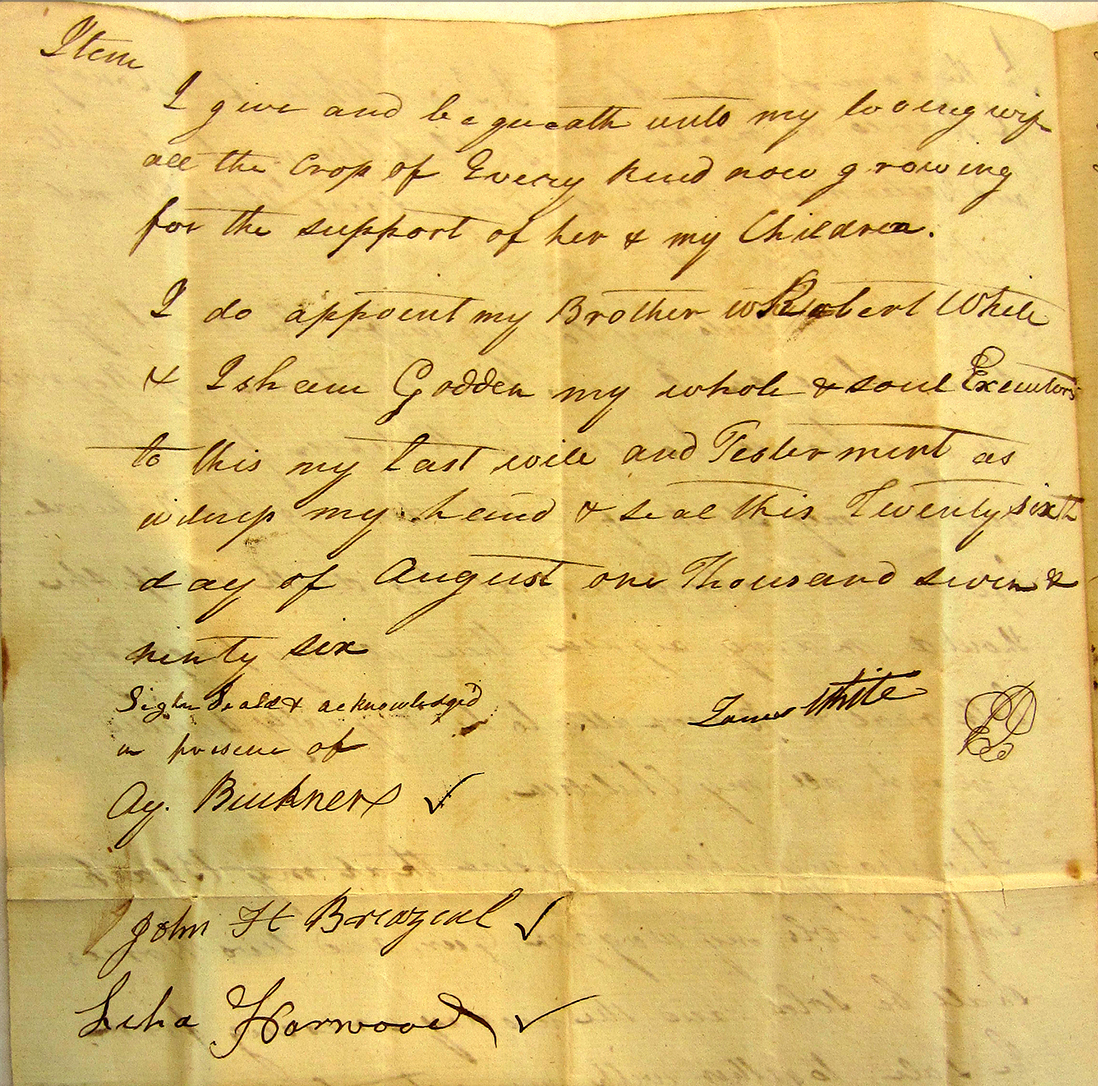 Item
I give and bequeath unto my loveing wife
all the Crop of Every kind now growing
for the support of her & my Children.
I do appoint my Brother Robert White
& Isham Godden my whole & soul Executors
to this my last will and Testerment as
my hand & seal this Twenty sixth
day of August one Thousand seven &
ninty six
Sign Seald & acknowledgd
in presence of
James White
Ay. Buckner
John H Breazeal
Harwood